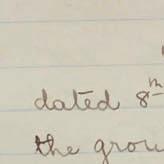 dated 8th
the grou